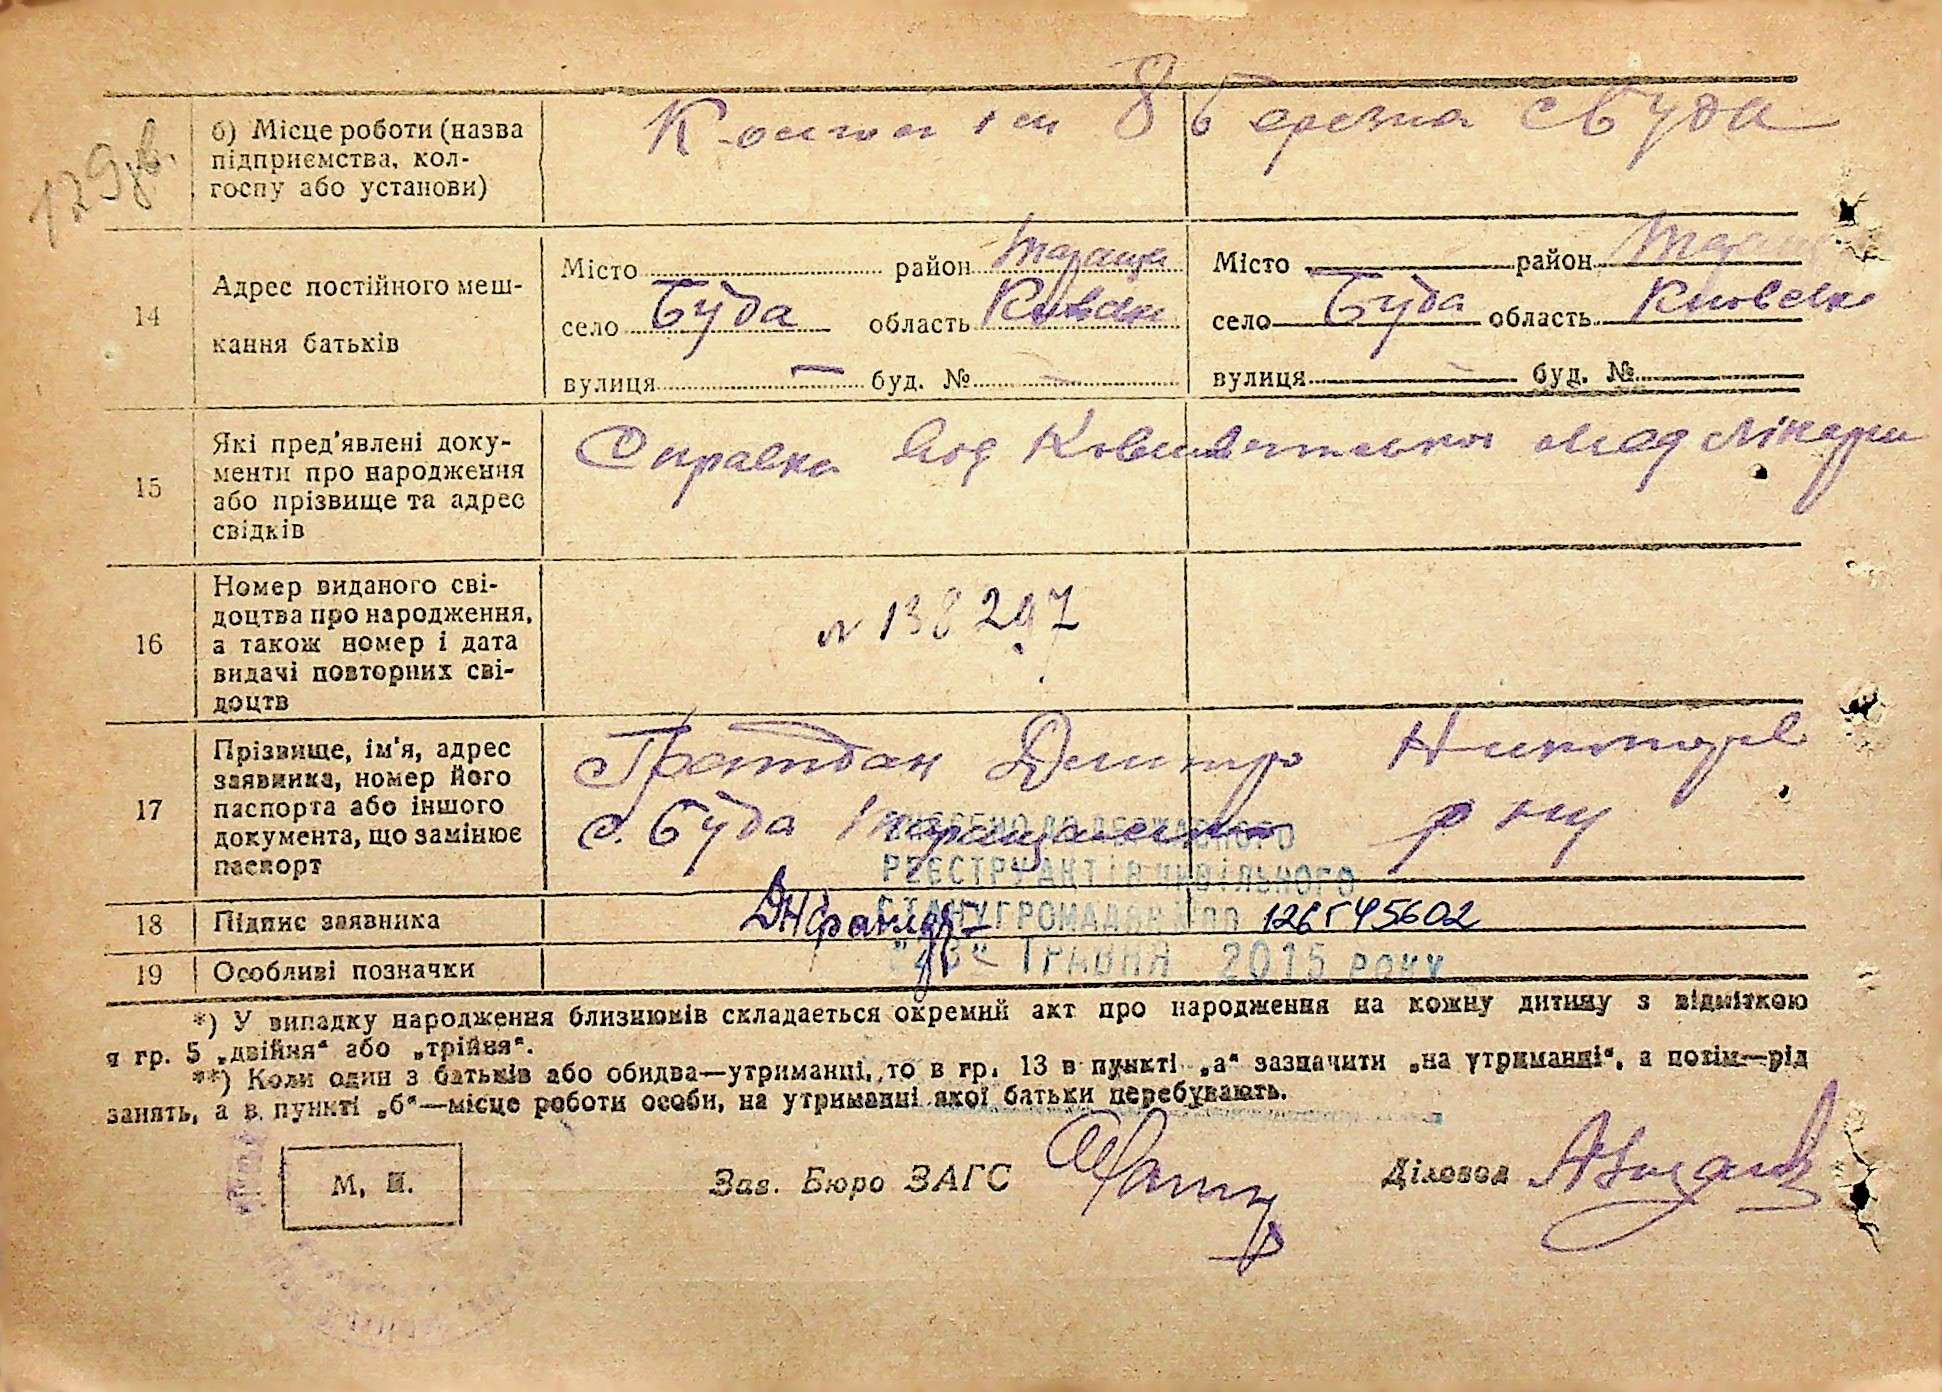 129 зв.
б) Місце роботи (назва
підприємства, кол-
госпу або установи)
8 Березня с Буда
14
Адрес постійного меш-
кання батьків
Місто район Тараща
село Буда область Київськ
вулиця — буд. № —
Місто — район
село Буда область Київськ
вулиця — буд. №
15
Які пред'явлені доку-
менти про народження
або прізвище та адрес
свідків
Справка
16
Номер виданого сві-
доцтва про народження,
а також номер і дата
видачі повторних сві-
доцтв
№ 138247
17
Прізвище, ім'я, адрес
заявника, номер його
паспорта або іншого
документа, що замінює
паспорт
Дмитро
с. Буда р ну
ВНЕСЕНО ДО ДЕРЖАВНОГО
РЕЄСТРУ АКТІВ ЦИВІЛЬНОГО
СТАНУ ГРОМАДЯН ПО 126Г45602
ТРАВНЯ 2015 РОКУ
18
Підпис заявника
19
Особливі позначки
*) У випадку народження близнюків складається окремий акт про народження на кожну дитину з відміткою
я гр. 5 „двійня“ або „трійня“.
**) Коли один з батьків або обидва—утриманці, то в гр. 13 в пункті „а“ зазначити „на утриманні“, а потім—рід
занять, а в пункті „б“—місце роботи особи, на утриманні якої батьки перебувають.
М. П.
Зав. Бюро ЗАГС
Діловод